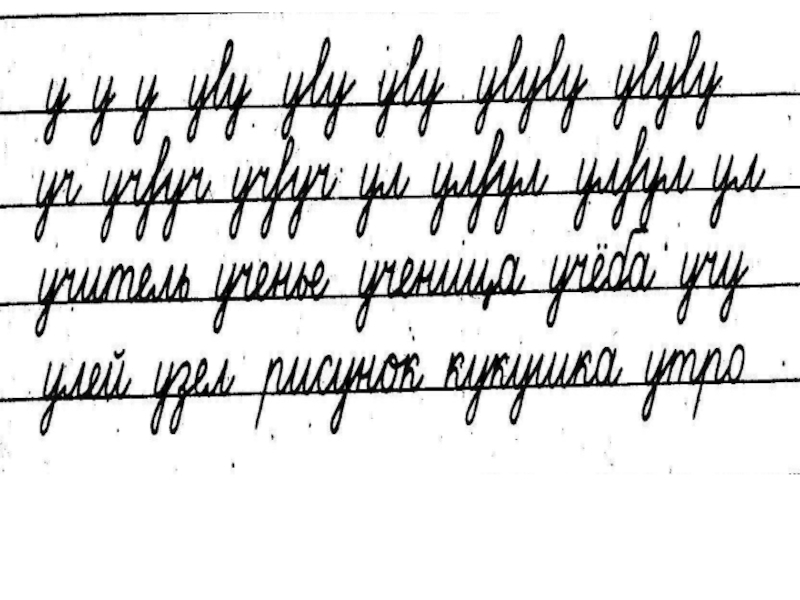 у у у уу уу уу ууу ууу
уч учуч учуч ул улул улул ул
учитель ученье ученица учёба учу
улей узел рисунок кукушка утро